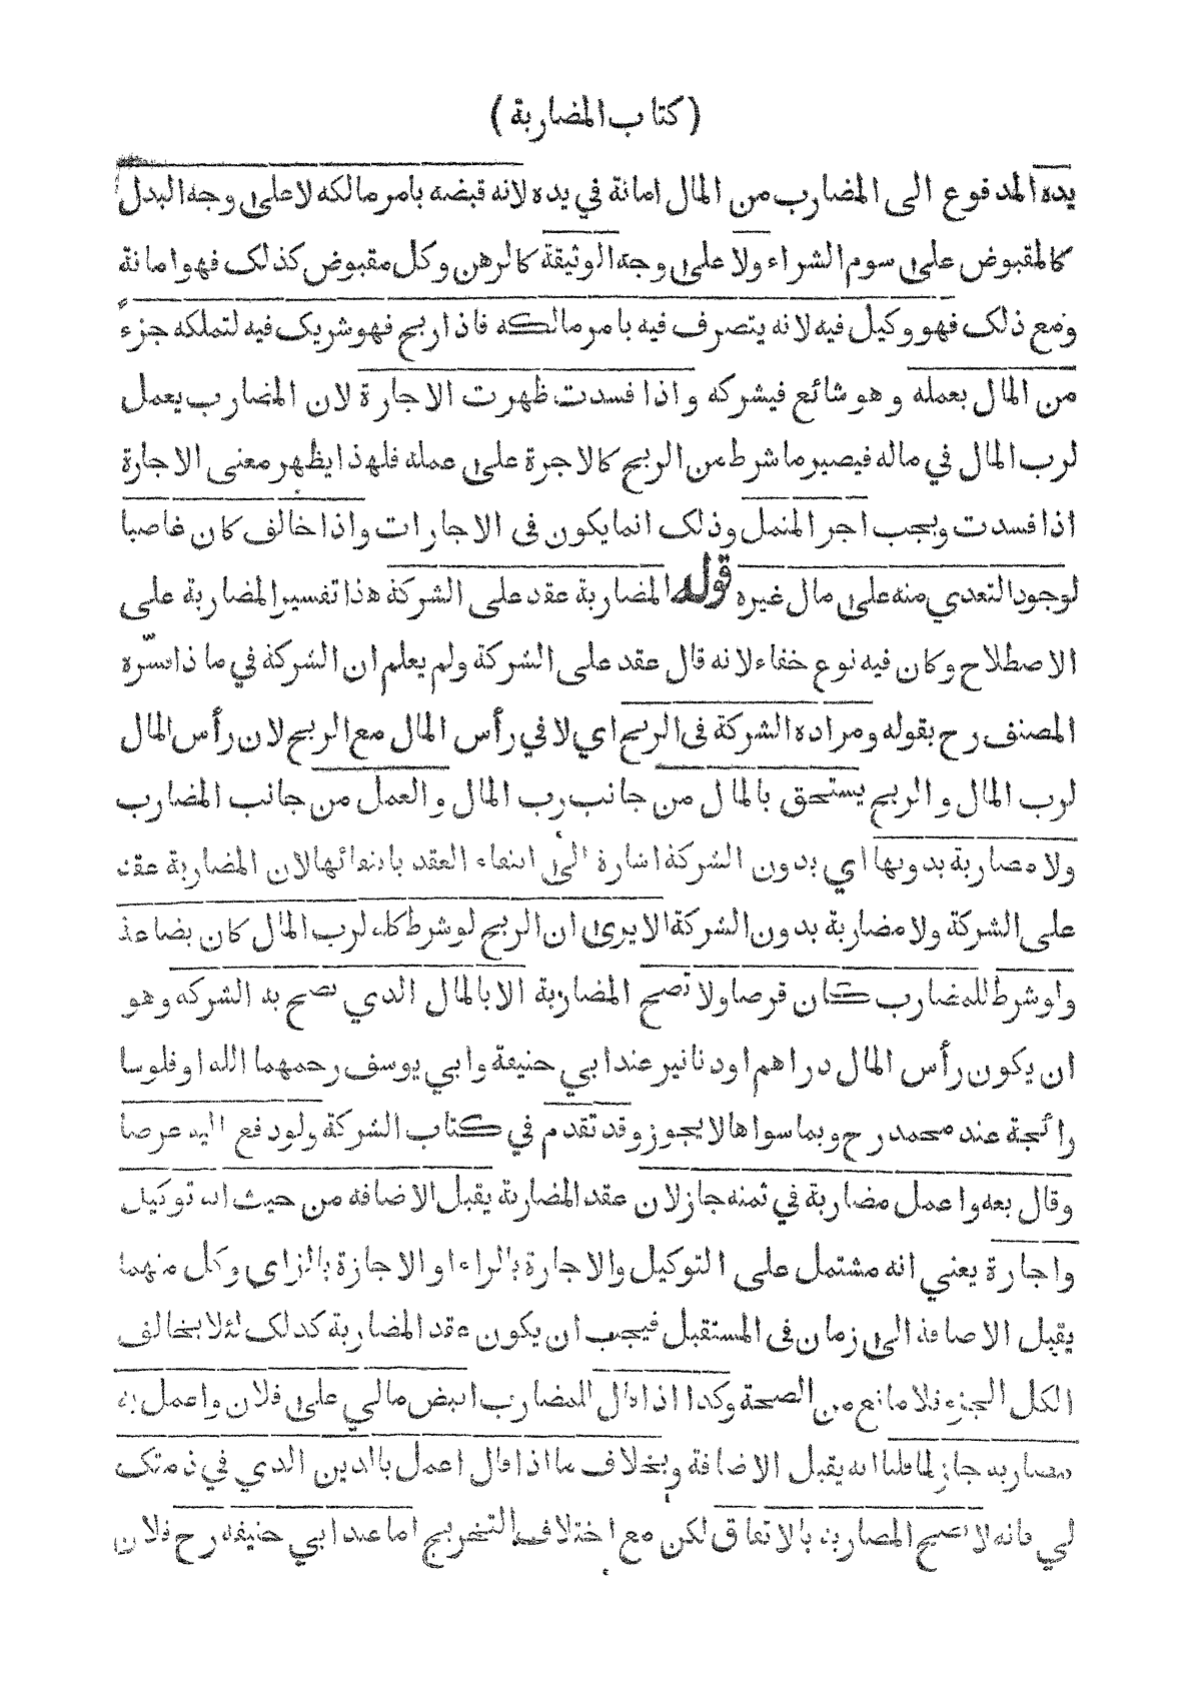 ( كتاب المضاربة )
يده المدفوع الى المضارب من المال امانة في يده لانه قبضه بامر مالكه لا على وجه البدل
كالمقبوض على سوم الشراء ولا على وجه الوثيقة كالرهن وكل مقبوض كذلك فهو امانة
ومع ذلك فهو وكيل فيه لانه يتصرف فيه بامر مالكه فاذا ربح فهو شريك فيه لتملكه جزءً
من المال بعمله وهو شائع فيشركه واذا فسدت ظهرت الاجارة لان المضارب يعمل
لرب المال في ماله فيصير ما شرط من الربح كالاجرة على عمله فلهذا يظهر معنى الاجارة
اذا فسدت ويجب اجر المثل وذلك انما يكون فى الاجارات واذا خالف كان غاصبا
لوجود التعدي منه على مال غيره قوله المضاربة عقد على الشركة هذا تفسير المضاربة على
الاصطلاح وكان فيه نوع خفاء لانه قال عقد على الشركة ولم يعلم ان الشركة في ما ذا فسّره
المصنف رح بقوله ومراده الشركة فى الربح اي لا في رأس المال مع الربح لان رأس المال
لرب المال والربح يستحق بالمال من جانب رب المال والعمل من جانب المضارب
ولا مضاربة بدونها اي بدون الشركة اشارة الى انتفاء العقد بانتفائها لان المضاربة عقد
على الشركة ولا مضاربة بدون الشركة الا يرى ان الربح لو شرط كله لرب المال كان بضاعة
ولو شرط للمضارب كان قرضا ولا تصح المضاربة الا بالمال الذي تصح به الشركة وهو
ان يكون رأس المال دراهم او دنانير عند ابي حنيفة وابي يوسف رحمهما الله او فلوسا
رائجة عند محمد رح وبما سواها لا يجوز وقد تقدم في كتاب الشركة ولو دفع اليه عرضا
وقال بعه واعمل مضاربة في ثمنه جاز لان عقد المضاربة يقبل الاضافة من حيث انه توكيل
واجارة يعني انه مشتمل على التوكيل والاجارة بالراء او الاجازة بالزاى وكل منهما
يقبل الاضافة الى زمان فى المستقبل فيجب ان يكون عقد المضاربة كذلك لئلا يخالف
الكل الجزء فلا مانع من الصحة وكذا اذا قال للمضارب اقبض مالي على فلان واعمل به
مضاربة جاز لما قلنا انه يقبل الاضافة وبخلاف ما اذا قال اعمل بالدين الذي في ذمتك
لي فانه لا تصح المضاربة بالاتفاق لكن مع اختلاف التخريج اما عند ابي حنيفة رح فلان